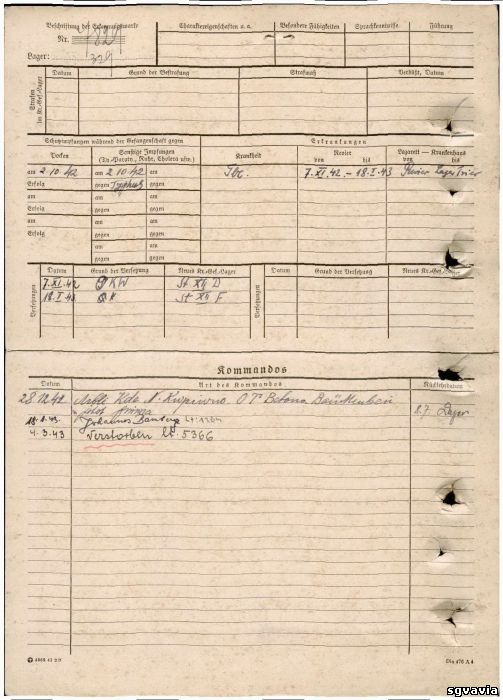 Beschriftung der Erkennungsmarke
Nr.
Lager: 329
Charaktereigenschaften u. a.
Besondere Fähigkeiten
Sprachkenntnisse
Führung
Strafen im Kr.-Gef.-Lager
Datum
Grund der Bestrafung
Strafmaß
Verbüßt, Datum
Schutzimpfungen während der Gefangenschaft gegen
Erkrankungen
Pocken
Sonstige Impfungen
(Ty.-Paraty., Ruhr, Cholera usw.)
Krankheit
Revier
von bis
Lazarett — Krankenhaus
von bis
am 2 10. 42 am 2 10 42 am
Tbc. 7. XI. 42. – 18. I. 43 Revier Lager Trier
Erfolg gegen Typhus gegen
am am am
Erfolg gegen gegen
am am am
Erfolg gegen gegen
am am
gegen gegen
Versetzungen
Datum
Grund der Versetzung
Neues Kr.-Gef.-Lager
Versetzungen
Datum
Grund der Versetzung
Neues Kr.-Gef.-Lager
7. XI. 42 KW St XII D
18. I. 43 St XII F
Kommandos
Datum
Art des Kommandos
Rückkehrdatum
28.12.42 Arb. Kdo
Lager
Johannes
4. 3. 43 Verstorben lt. 5366
4085 41 2D
Din 476 A 4
sgvavia